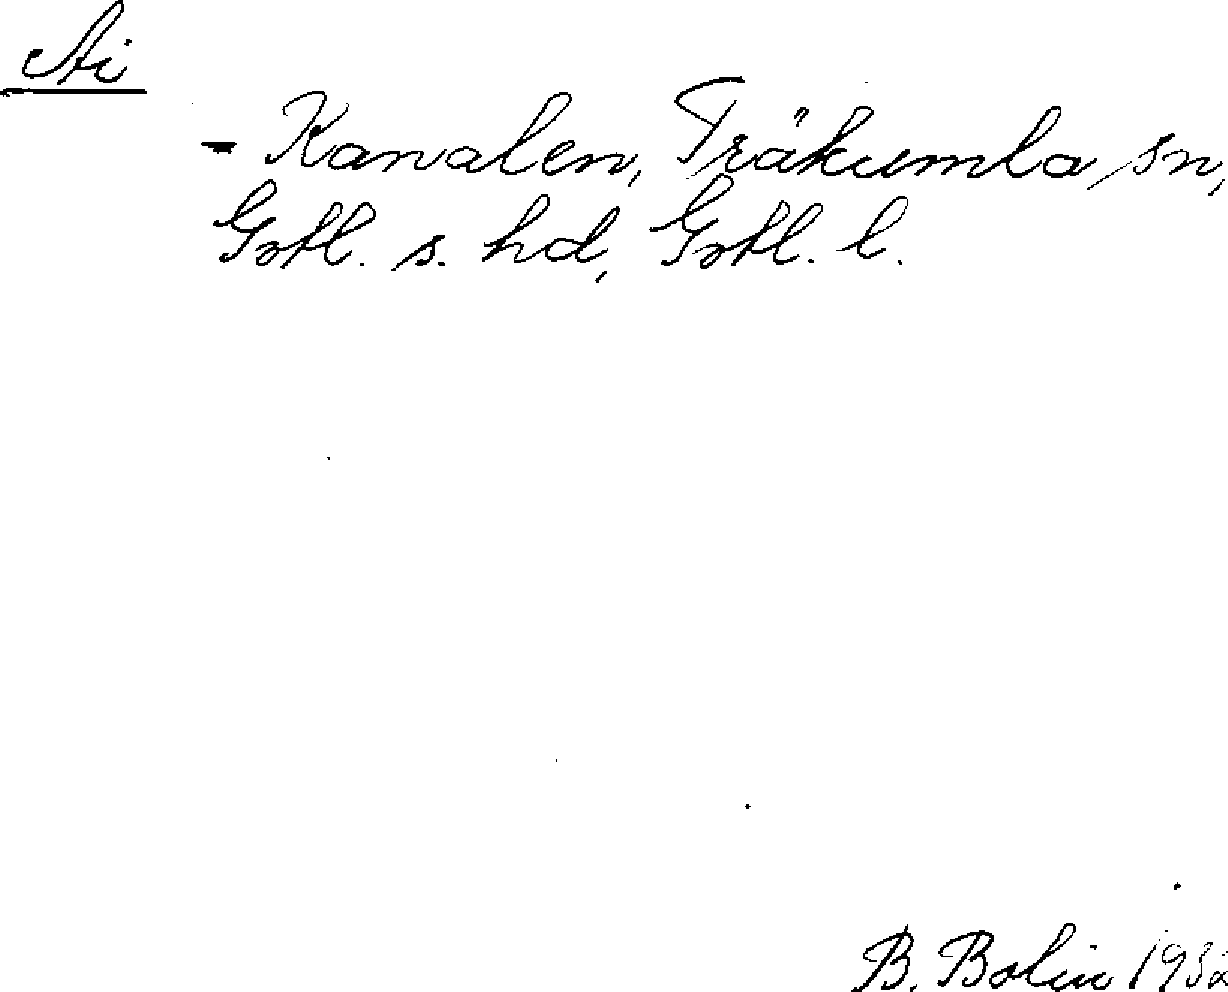 Ai
- Kanalen, Träkumla sn,
Gotl. s. hd, Gotl. l.
B. Bolin 1932